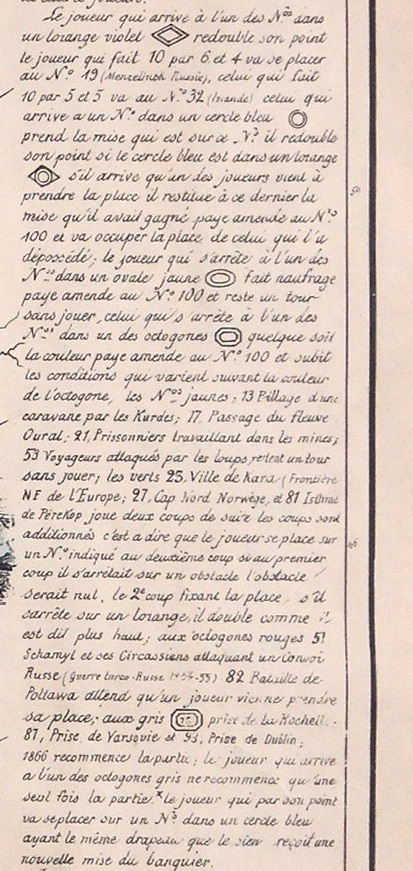 Le joueur qui arrive à l'un des Nos dans
un lorange violet redouble son point
le joueur qui fait 10 par 6 et 4 va se placer
au No 19 (Russie), celui qui fait
10 par 5 et 5 va au No 32 (Irlande) celui qui
arrive a un No dans un cercle bleu
prend la mise qui est sur ce No il redouble
son point si le cercle bleu est dans un lorange
s'il arrive qu'un des joueurs vient à
prendre la place il restitue à ce dernier la
mise qu'il avait gagné paye amende au No
100 et va occuper la place de celui qui l'a
dépossédé; le joueur qui s'arrête à l'un des
Nos dans un ovale jaune fait naufrage
paye amende au No 100 et reste un tour
sans jouer, celui qui s'arrête à l'un des
Nos dans un des octogones quelque soit
la couleur paye amende au No 100 et subit
les conditions qui varient suivant la couleur
de l'octogone, les Nos jaunes; 13 Pillage d'une
caravane par les Kurdes; 17, Passage du fleuve
Oural; 21, Prissonniers travaillant dans les mines;
53 Voyageurs attaqués par les loups, restent un tour
sans jouer; les verts 25, Ville de Kara (Frontière
NE de l'Europe; 27, Cap Nord Norwège, et 81 Isthme
de Pérékop joue deux coups de suite les coups sont
additionnés c'est a dire que le joueur se place sur
un No indiqué au deuxième coup si au premier
coup il s'arrêtait sur un obstacle l'obstacle
serait nul, le 2e coup fixant la place, s'il
s'arrête sur un lorange, il double comme il
est dit plus haut; aux octogones rouges 51
Schamyl et ses Circassiens attaquant un Convoi
Russe (Guerre turco-Russe 1854-55) 82 Bataille de
Poltawa attend qu'un joueur vienne prendre
sa place; aux gris prise de la Rochelle
87, Prise de Varsovie et 93, Prise de Dublin;
1866 recommence la partie; le joueur qui arrive
a l'un des octogones gris ne recommence qu'une
seul fois la partie. le joueur qui par son point
va se placer sur un No dans un cercle bleu
ayant le même drapeau que le sien reçoit une
nouvelle mise du banquier.